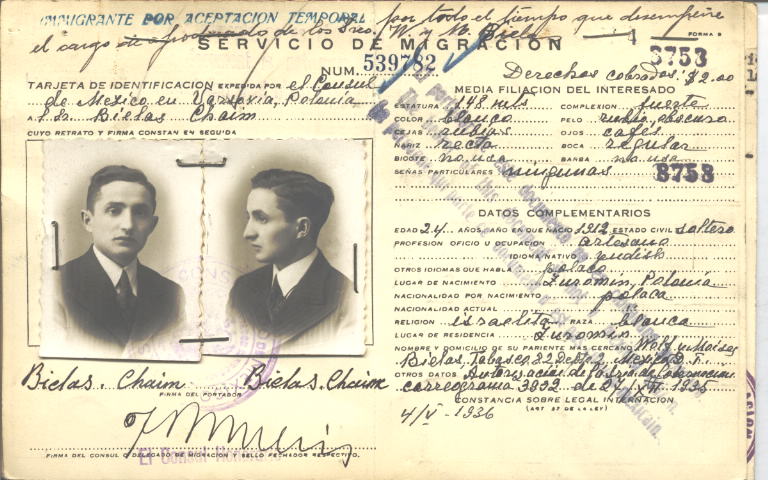 INMIGRANTE POR ACEPTACION TEMPORAL por todo el tiempo que desempeñe
el cargo de apoderado de los Sres. W. y M. Bielas
SERVICIO DE MIGRACIÓN
FORMA 5
4
NUM. 539782
3753
Derechos cobrados: $2.00
TARJETA DE IDENTIFICACION EXPEDIDA POR el Consul
de Mexico en Varsovia, Polonia
A Sr. Bielas Chaim
CUYO RETRATO Y FIRMA CONSTAN EN SEGUIDA
Bielas. Chaim Bielas. Chaim
FIRMA DEL PORTADOR
El Consul
FIRMA DEL CONSUL O DELEGADO DE MIGRACION Y SELLO FECHADOR RESPECTIVO.
MEDIA FILIACION DEL INTERESADO
ESTATURA 148 mts COMPLEXION fuerte
COLOR blanco PELO rubio obscuro
CEJAS rubias OJOS cafes
NARIZ recta BOCA regular
BIGOTE no usa BARBA no usa
SEÑAS PARTICULARES ningunas 3753
DATOS COMPLEMENTARIOS
EDAD 24 AÑOS. AÑO EN QUE NACIO 1912 ESTADO CIVIL soltero
PROFESION OFICIO U OCUPACION artesano
IDIOMA NATIVO yudish
OTROS IDIOMAS QUE HABLA polaco
LUGAR DE NACIMIENTO Zuromin, Polonia
NACIONALIDAD POR NACIMIENTO polaca
NACIONALIDAD ACTUAL
RELIGION israelita RAZA blanca
LUGAR DE RESIDENCIA Zuromin
NOMBRE Y DOMICILIO DE SU PARIENTE MAS CERCANO y Moises
Bielas, Tabasco 22 Mexico D. F.
OTROS DATOS Autorizacion de la Sria de Gobernacion
correograma 3892 de 27/XII 1935
CONSTANCIA SOBRE LEGAL INTERNACION
(ART 57 DE LA LEY)
4/V-1936